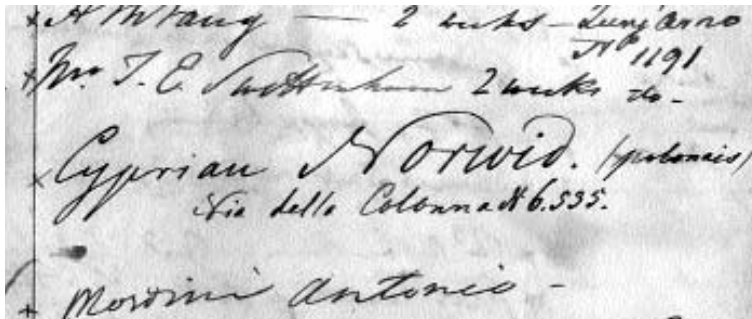 2 weeks - Lung'arno
No 1191
Mr. T. E. 2 weeks do -
Cyprian Norwid. (polonais)
Via della Colonna N 6.535.
Mordini Antonio -